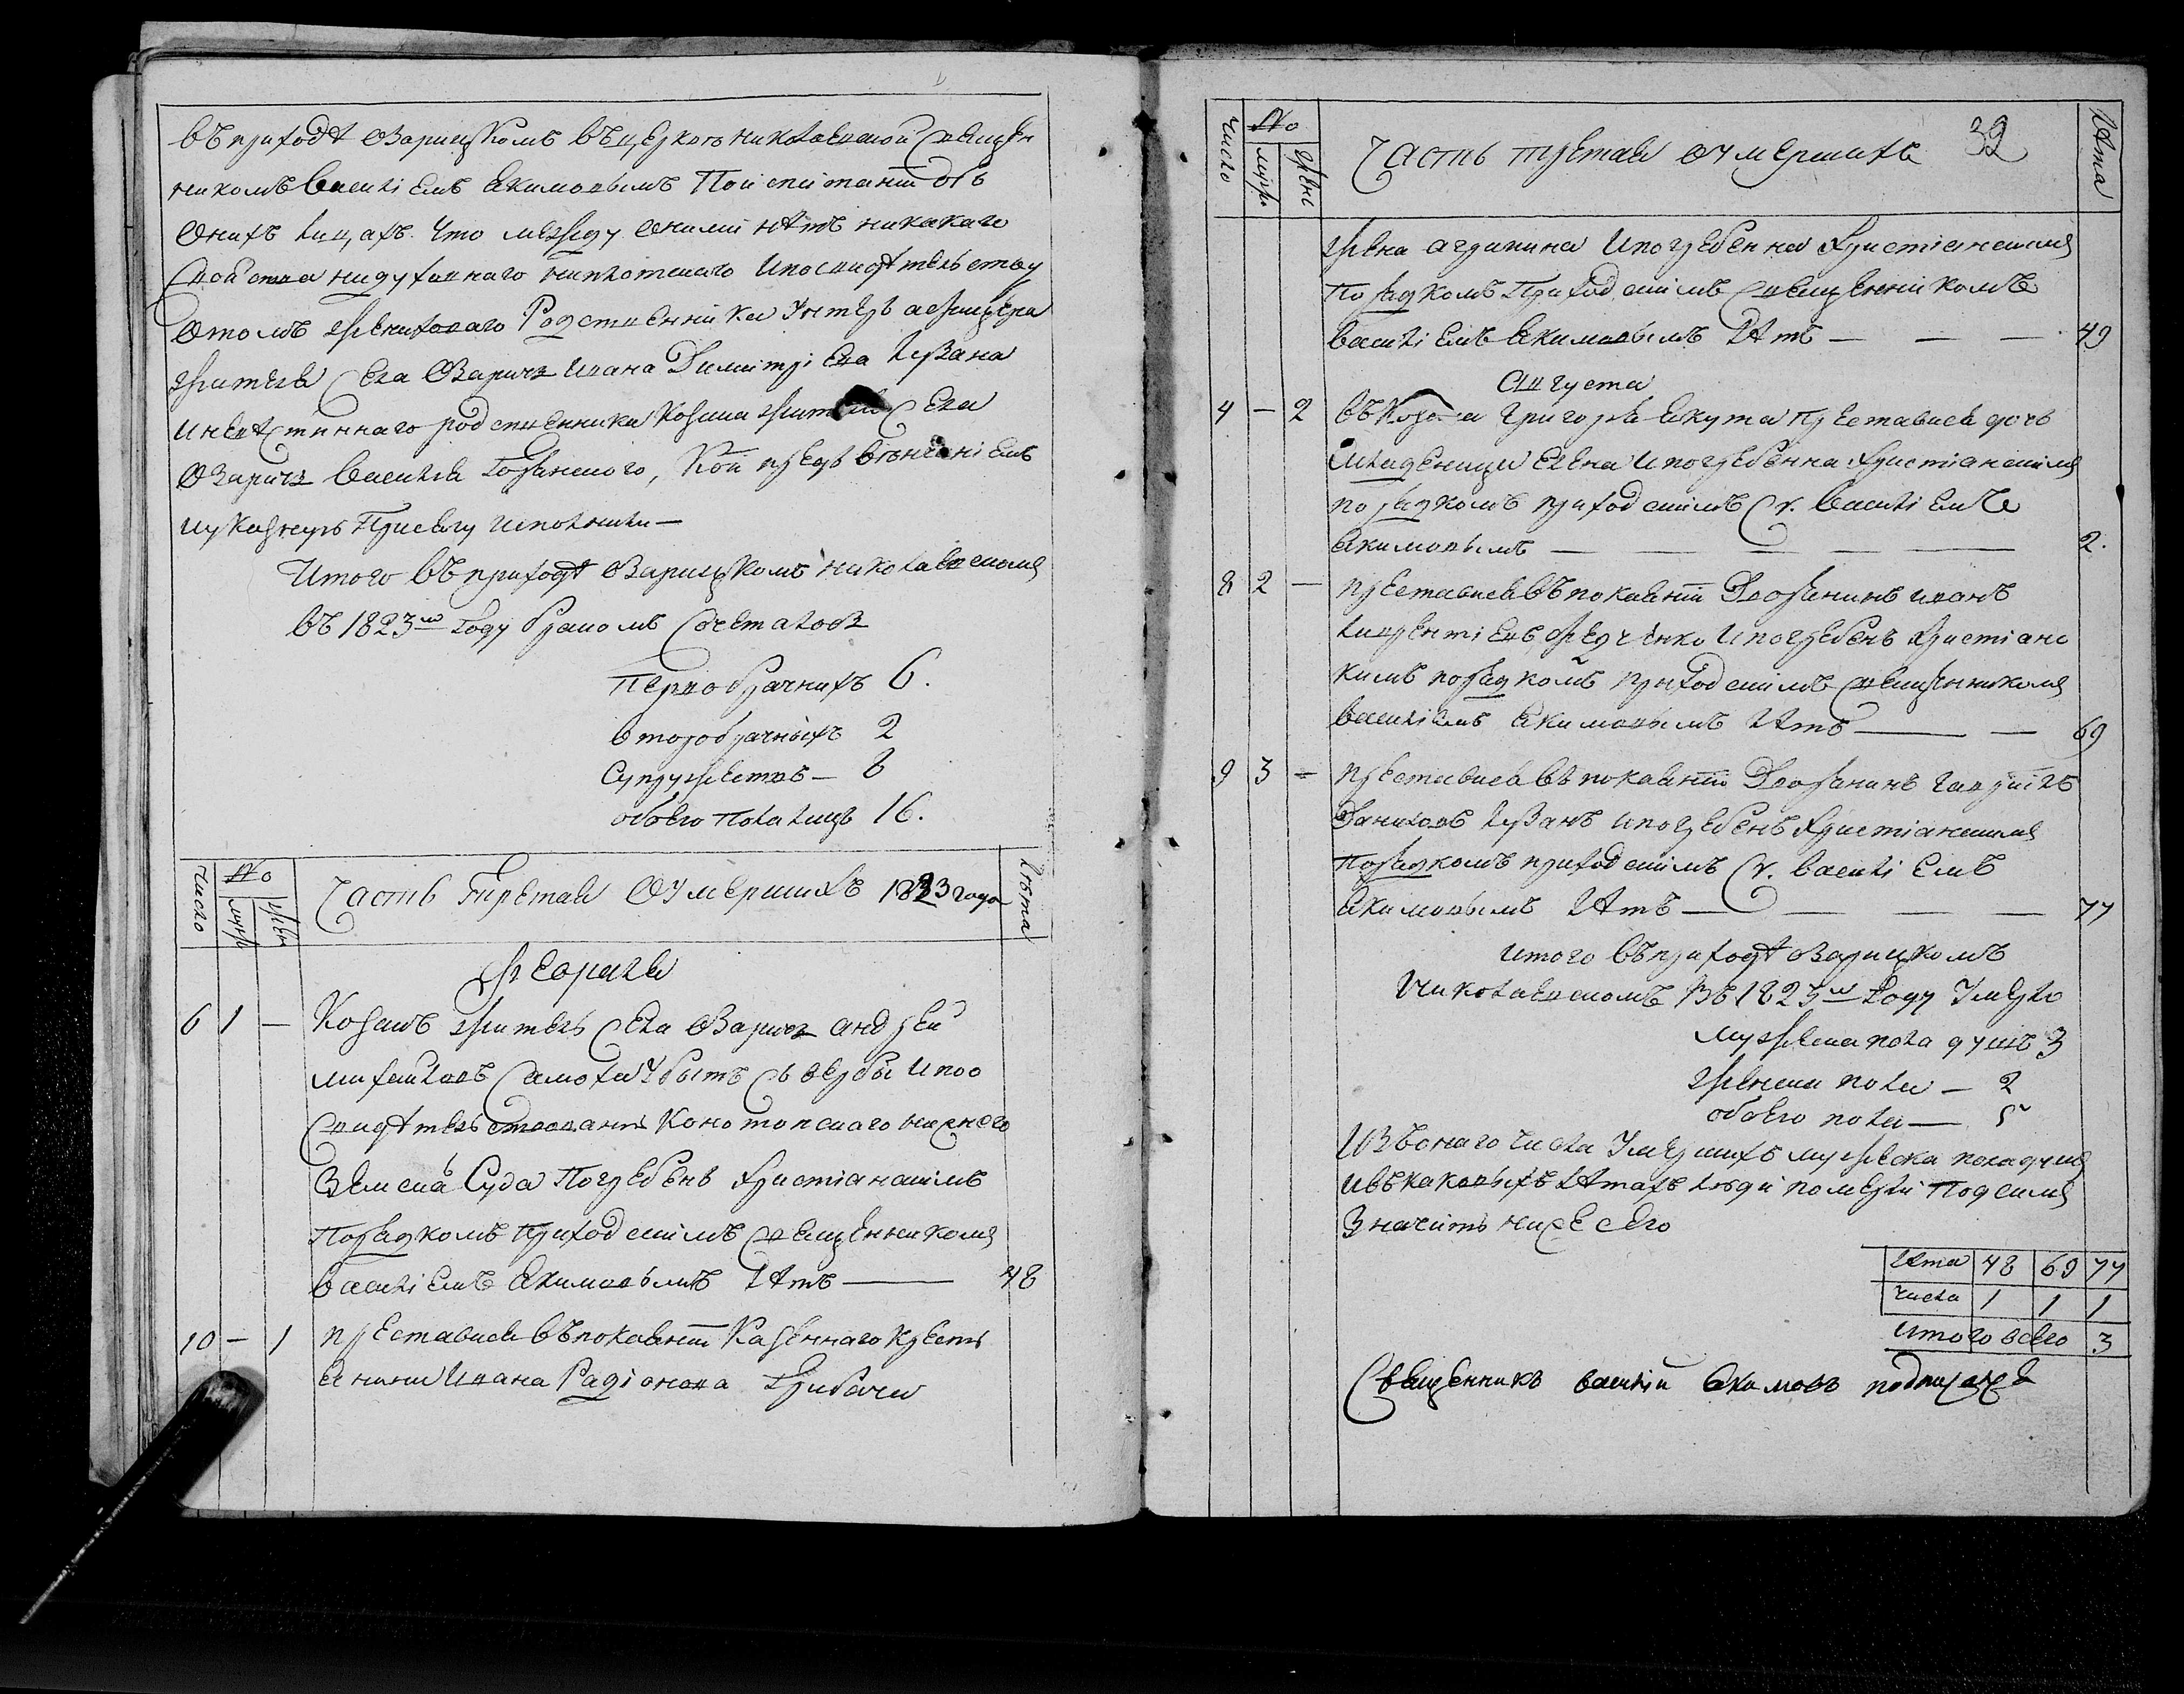 въ приходѣ Озарицкомъ въ церквѣ николаевской Священ
никомъ Василіемъ Якимовымъ По испитаніи объ
Онихъ лицахъ. Что между Оними нѣтъ никакаго
Свойства ни духовнаго ни плотскаго И по свидѣтельству
Отомъ женихова го Родственника Унтеръ афицера
жителя Села Озаричъ Ивана Димитріева
И невѣстиннаго родственника Козака жителя Села
Озаричъ Василія, Кои предъ вѣнчаніемъ
и указную Присягу исполнили —
Итого въ приходѣ Озарицкомъ николаевскомъ
въ 1823м году бракомъ Сочеталось
Первобрачнихъ 6.
второбрачныхъ 2
Супружествъ — 8
обоего пола лицъ 16.
число
№
муж
жен
Часть Третая Оумершихъ 1823 года
лѣта
февраля
6 1 — Козакъ житель Села Озаричъ андрей
михайловъ Самоха убытъ съ вербы и по о
Свидѣтельствованіи Конотопскаго нижнего
Земска Суда Погребенъ христіанскимъ
Порядкомъ приходскимъ Священникомъ
Василіемъ Якимовымъ Лѣтъ — 48
10 — 1 преставися въ покаяніи Казенного кресть
янина Ивана Радіонова
число
№
муж
женс
Часть третая оумершихъ
39
Лѣта
жена агрипина И погребенна христіанскимъ
Порядкомъ Приходскимъ Священникомъ
Василіемъ Якимовымъ Лѣтъ — — — 49
Августа
4 — 2 въ Козака Григорія Якута Преставися дочь
младеница Елена И погребенна христіанскимъ
порядкомъ приходскимъ С. Василіемъ
Якимовымъ — — — — — 2.
8 2 — преставися въ покаяніи Дворянинъ иванъ
Лаврентіевъ Федченко И погребенъ христіанс
кимъ порядкомъ приходскимъ Священникомъ
Василіемъ Якимовымъ Лѣтъ — — 69
9 3 — преставися въ покаяніи Дворянинъ гавріилъ
Даниловъ И погребенъ христіанскимъ
Порядкомъ приходскимъ С. Василіемъ
Якимовымъ Лѣтъ — — — — 77
итого въ приходѣ озарицкомъ
Николаевскомъ Въ 1823м году Умерло
мужеска пола душъ 3
женска пола — 2
обоего пола — 5
Изъ онаго числа Умершихъ мужеска пола душъ
и въ каковыхъ лѣтахъ люди померли Под симъ
Значитъ ниже сего
Лѣта 48 69 77
числа 1 1 1
итого всего 3
Священникъ василій Якимовъ подписался